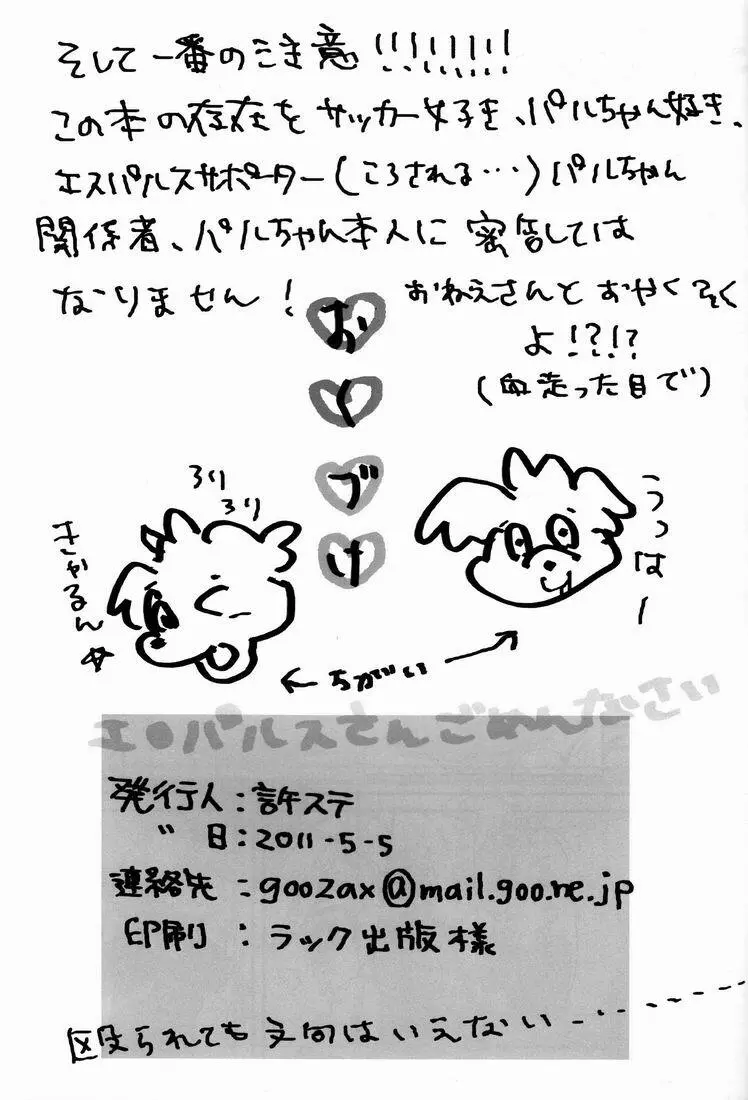 そして一番のご注意!!!!!!!!
この本の存在をサッカー好き、パルちゃん好き、
エスパルスサポーター(ころされる…)パルちゃん
関係者、パルちゃん本人に密告しては
なりません!
おねえさんとおやくそく
よ!?!?
(血走った目で)
おくづけ
ろり
ろり
きゃるん☆
うっはー
←ちがい→
エ●パルスさんごめんなさい
発行人:許ステ
〃 日:2011-5-5
連絡先:goozax@mail.goo.ne.jp
印刷:ラック出版様
殴られても文句はいえない-------